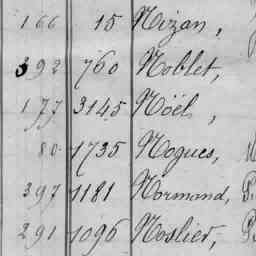 166 15 Nizan,
392 760 Noblet,
177 3145 Nöël,
80 1735 Nogues,
397 1181 Normand,
291 1096 Noslier,